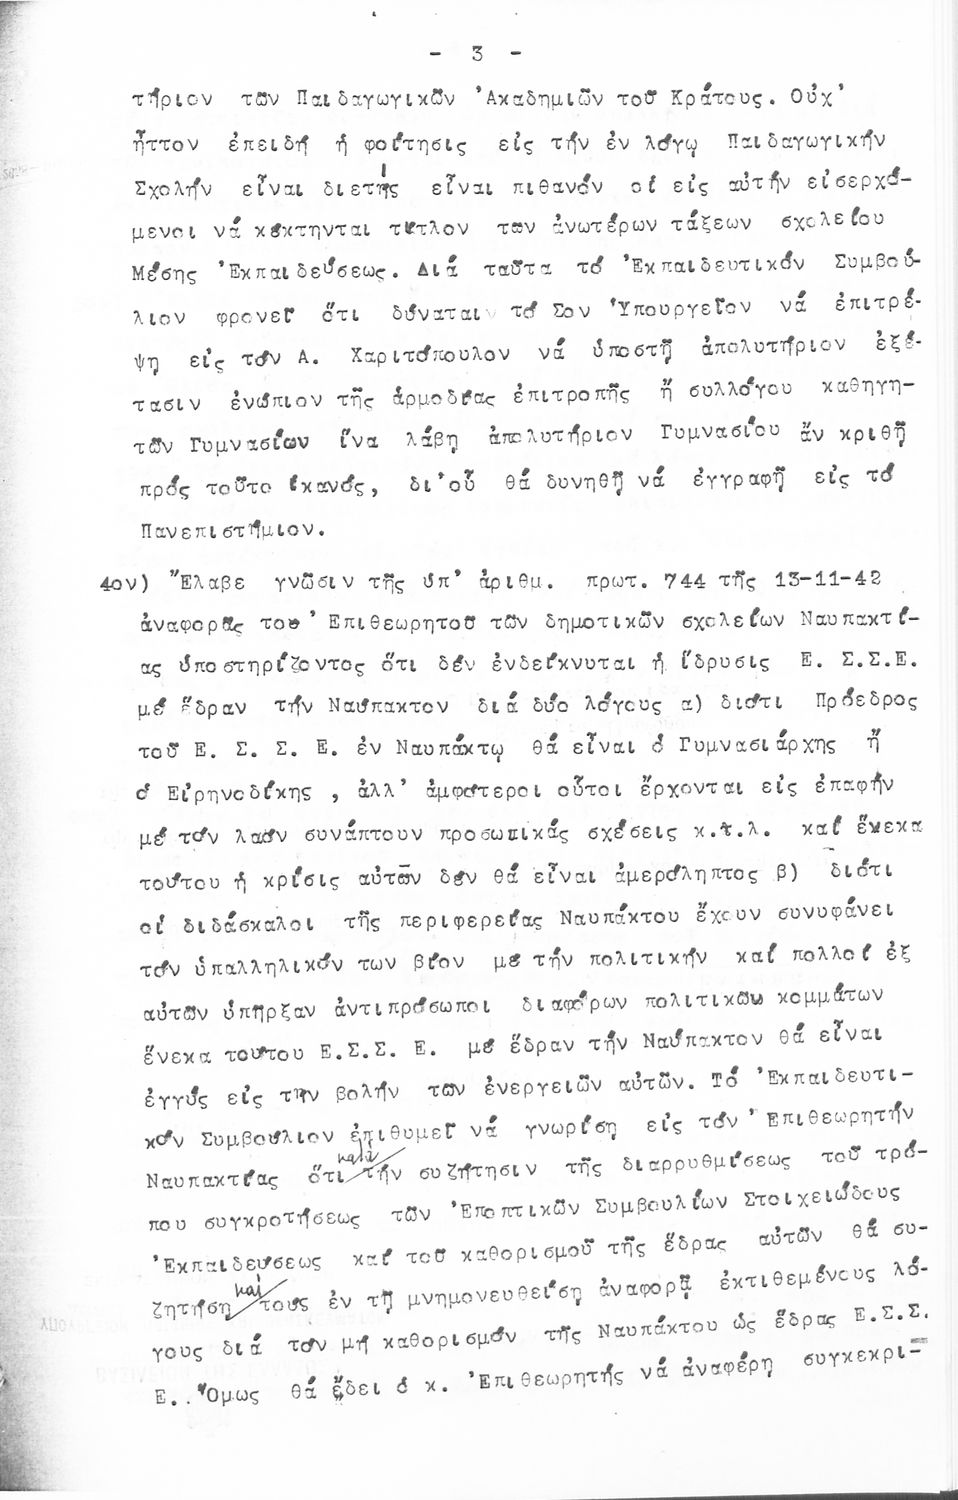 - 3 -
τήριον τῶν Παιδαγωγικῶν Ἀκαδημιῶν τοῦ Κράτους. Οὐχ'
ἧττον ἐπειδή ἡ φοίτησις εἰς τήν ἐν λόγῳ Παιδαγωγικήν
Σχολήν εἶναι διετής εἶναι πιθανόν οἱ εἰς αὐτήν εἰσερχό-
μενοι νά κέκτηνται τίτλον τῶν ἀνωτέρων τάξεων σχολείου
Μέσης Ἐκπαιδεύσεως. Διά ταῦτα τό Ἐκπαιδευτικόν Συμβού-
λιον φρονεῖ ὅτι δύναται τό Σον Ὑπουργεῖον νά ἐπιτρέ-
ψη εἰς τόν Α. Χαριτόπουλον νά ὑποστῇ ἀπολυτήριον ἐξέ-
τασιν ἐνώπιον τῆς ἁρμοδίας ἐπιτροπῆς ἤ συλλόγου καθηγη-
τῶν Γυμνασίων ἵνα λάβῃ ἀπολυτήριον Γυμνασίου ἄν κριθῇ
πρός τοῦτο ἱκανός, δι'οὗ θά δυνηθῇ νά ἐγγραφῇ εἰς τό
Πανεπιστήμιον.
4ον) Ἔλαβε γνῶσιν τῆς ὑπ' ἀριθμ. πρωτ. 744 τῆς 13-11-42
ἀναφορᾶς του Ἐπιθεωρητοῦ τῶν δημοτικῶν σχολείων Ναυπακτί-
ας ὑποστηρίζοντος ὅτι δέν ἐνδείκνυται ἡ ἵδρυσις Ε. Σ.Σ.Ε.
μέ ἕδραν τήν Ναύπακτον διά δύο λόγους α) διότι Πρόεδρος
τοῦ Ε. Σ. Σ. Ε. ἐν Ναυπάκτῳ θά εἶναι ὁ Γυμνασιάρχης ἤ
ὁ Εἰρηνοδίκης , ἀλλ' ἀμφότεροι οὗτοι ἔρχονται εἰς ἐπαφήν
μέ τόν λαόν συνάπτουν προσωπικάς σχέσεις κ.τ.λ. καί ἕνεκα
τούτου ἡ κρίσις αὐτῶν δέν θά εἶναι ἀμερόληπτος β) διότι
οἱ διδάσκαλοι τῆς περιφερείας Ναυπάκτου ἔχουν συνυφάνει
τόν ὑπαλληλικόν των βίον μέ τήν πολιτικήν καί πολλοί ἐξ
αὐτῶν ὑπῆρξαν ἀντιπρόσωποι διαφόρων πολιτικῶν κομμάτων
ἕνεκα τούτου Ε.Σ.Σ. Ε. μέ ἕδραν τήν Ναύπακτον θά εἶναι
ἐγγύς εἰς τήν βολήν των ἐνεργειῶν αὐτῶν. Τό Ἐκπαιδευτι-
κόν Συμβούλιον ἐπιθυμεῖ νά γνωρίσῃ εἰς τόν Ἐπιθεωρητήν
Ναυπακτίας ὅτι κατά τήν συζήτησιν τῆς διαρρυθμίσεως τοῦ τρό-
που συγκροτήσεως τῶν Ἐποπτικῶν Συμβουλίων Στοιχειώδους
Ἐκπαιδεύσεως καί τοῦ καθορισμοῦ τῆς ἕδρας αὐτῶν θά συ-
ζητήσῃ καί τούς ἐν τῇ μνημονευθείσῃ ἀναφορᾷ ἐκτιθεμένους λό-
γους διά τόν μή καθορισμόν τῆς Ναυπάκτου ὡς ἕδρας Ε.Σ.Σ.
Ε.. Ὅμως θά ἔδει ὁ κ. Ἐπιθεωρητής νά ἀναφέρῃ συγκεκρι-